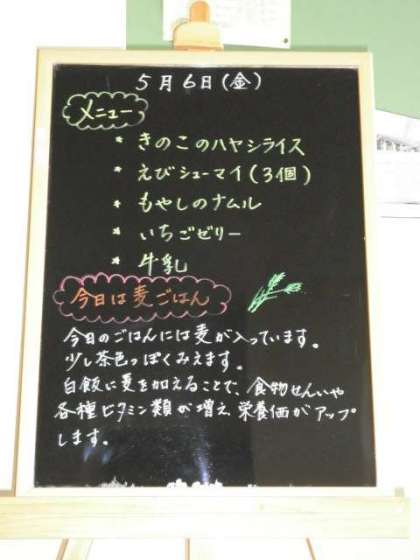 5月6日(金)
メニュー
* きのこのハヤシライス
* えびシューマイ(3個)
* もやしのナムル
* いちごゼリー
* 牛乳
今日は麦ごはん
今日のごはんには麦が入っています。
少し茶色っぽくみえます。
白飯に麦を加えることで、食物せんいや
各種ビタミン類が増え、栄養価がアップ
します。